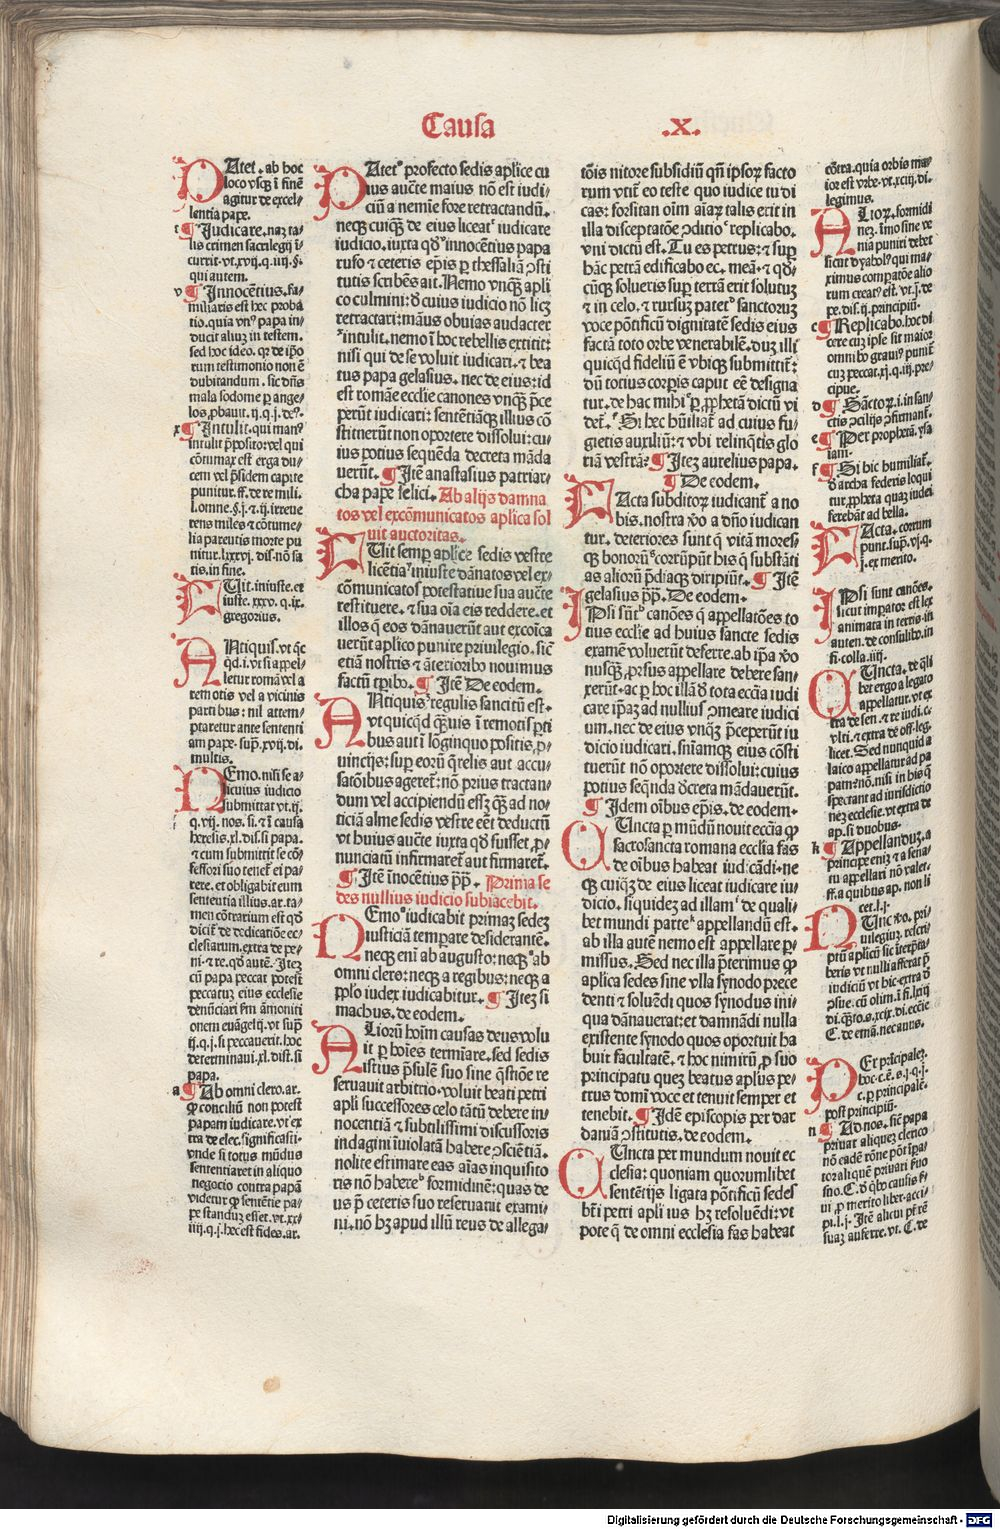 Causa .x.
PAtet. ab hoc
loco vsq̄ ī finē
agitur de excel-
lentia pape.
¶ Iudicare. naꝫ ta-
lis crimen sacrilegij ī-
currit. vt. xvij. q. iiij. §.
qui autem.
v ¶ Innocētius. fa-
miliaris est hec proba
tio. quia vnꝰ papa in-
ducit aliuꝫ in testem.
sed hoc ideo. qꝛ de ip̄o
rum testimonio non ē
dubitandum. sic dn̄s
mala sodome ꝑ ange-
los ꝓbauit. ij. q. j. deꝰ.
x ¶ Intulit. qui manꝰ
intulit p̄positoꝛ vel qui
cōtumax est erga du-
cem vel p̄sidem capite
punitur. ff. de re mili.
l. omne. §. j. ⁊ ij. irreue
rens miles ⁊ cōtume-
lia parentis morte pu
nitur. lxxxvj. dis. nō sa
tis. in fine.
FUit. iniuste. et
iuste. xxxv. q. ix.
gregorius.
ANtiquis. vt q̄c
q̄d. i. vt si appel-
letur romā vel a
remotis vel a vicinis
partibus: nil attem-
ptaretur ante sententi
am pape. sup̄. xvij. di.
multis.
NEmo. nisi se a-
licuius iudicio
submittat vt. ij.
q. vij. nos. si. ⁊ ī causa
heresis. xl. dis. si papa.
⁊ cum submittit se cō-
fessori suo tenet̄ ei pa-
rere. et obligabit eum
sententia illius. ar. ta-
men cōtrarium est qd̄
dicit̄ de dedicatiōe ec-
clesiarum. extra de re-
ni. ⁊ re. qd̄ autē. Iteꝫ
cū papa peccat potest
peccatuꝫ eius ecclesie
denūciari ẜm āmoniti
onem euāgelij. vt sup̄
ij. q. j. si peccauerit. hoc
determinaui. xl. dist. si
papa.
a ¶ Ab omni clero. ar.
ꝙ conciliū non potest
papam iudicare. vt ex
tra de elec. significasti.
vnde si totus mūdus
sententiaret in aliquo
negocio contra papā
videtur ꝙ sentētie pa-
pe standuꝫ esset. vt. xxi
iiij. q. j. hec est fides. ar.
PAtetꝰ profecto sedis aplice cu
ius auct̄e maius nō est iudi-
ciū a nemīe fore retractandū.
neqꝫ cuiq̄ꝫ de eius liceatꝰ iudicare
iudicio. iuxta qd̄ꝰ innocētius papa
rufo ⁊ ceteris ep̄is ꝑ thessaliā ꝯsti
tutis scribēs ait. Nemo vnq̄ꝫ apli
co culmini: d̄ cuius iudicio nō licꝫ
retractari: man̄us obuias audacter
ꝰintulit. nemo ī hoc rebellis extitit:
nisi qui de se voluit iudicari. ⁊ bea
tus papa gelasius. nec de eius: id
est romāe eccl̄ie canones vnq̄ꝫ p̄ce
perūt iudicari: sentētiāqꝫ illius cō
stituerūt non oportere dissolui: cu-
ius potius sequēda decreta mā̄da
uerūt. ¶ Itē anastasius patriar-
cha pape felici. Ab alijs damna
tos vel excōmunicatos aplica sol
uit auctoritas.
FUit semꝑ aplice sedis vestre
licētiaꝰ iniuste dānatos vel ex-
cōmunicatos potestatiue sua auct̄e
restituere. ⁊ sua oīa eis reddere. et
illos q̄ eos dānauerūt aut excoīca
uerūt aplico punire priuilegio. sic̄
etiā nostris ⁊ āterioribꝰ nouimus
factū tp̄ibꝰ. ¶ Itē De eodem.
ANtiquisꝰ regulis sancitū est.
vt quicq̄d q̄ꝫuis ī remotis ꝓti
bus aut ī lōginquo positis. ꝓ-
uincijs: suꝑ eorū q̄relis aut accu-
satōibus ageret̄: nō prius tractan-
dum vel accipiendū essꝫ q̄ꝫ ad no-
ticiā alme sedis vestre eēt deductū
vt huius auct̄e iuxta qd̄ fuisset. ꝓ-
nunciatū infirmaret̄ aut firmaret̄.
¶ Itē īnocētius pp̄. Prima se
des nullius iudicio subiacebit.
NEmoꝰ iudicabit primaꝫ sedeꝫ
iusticiā temꝑare desiderantē.
neqꝫ eni ab augusto: neqꝫ ꝰab
omni clero: neqꝫ a regibus: neqꝫ a
pp̄lo iudex iudicabitur. ¶ Iteꝫ si
machus. de eodem.
ALiorū hoīm causas deus volu
it ꝑ hoīes termīare. sed sedis
istius p̄sulē suo sine q̄stiōe re
seruauit arbitrio. voluit beati petri
apli successores celo tātū debere in
nocentiā ⁊ subtilissimi discussoris
indagini īuiolatā habere ꝯsciētiā.
nolite estimare eas aīas inquisito
ris nō habereꝰ formidinē: quas de
us p̄ ceteris suo reseruauit exami-
ni. nō hꝫ apud illū reus de allega-
tōis nitore subsidiū qn̄ ipsoꝝ facto
rum vtit̄ eo teste quo iudice tu di
cas: forsitan oīm aīaꝝ talis erit in
illa disceptatōe ꝯditioꝰ replicabo.
vni dictū est. Tu es petrus: ⁊ suꝑ
hāc petrā edificabo ec. meā. ⁊ qd̄-
cūqꝫ solueris suꝑ terrā erit solutuꝫ
⁊ in celo. ⁊ rursuꝫ patetꝰ sanctoruꝫ
voce pōtificū dignitatē sedis eius
factā toto orbe venerabilē. duꝫ illi
quicq̄d fideliū ē vbiqꝫ submittit̄:
dū totius corpis caput eē designa
tur. de hac mihiꝰ ꝑ ꝓphetā dictū vi
det̄. ꝰSi hec hūiliat̄ ad cuius fu-
gietis auxiliū: ⁊ vbi relinq̄tis glo
riā vestrā? ¶ Iteꝫ aurelius papa.
¶ De eodem.
FActa subditoꝝ iudicant̄ a no
bis. nostra v̄o a dn̄o iudican
tur. deteriores sunt q̄ vitā mores-
qꝫ bonorū corrūpūt his q̄ substāti
as aliorū p̄diaqꝫ diripiūt. ¶ Itē
gelasius pp̄. De eodem.
IPsi sūntꝰ canōes q̄ appellatōes to
tius eccl̄ie ad huius sancte sedis
examē voluerūt deferre. ab ip̄a v̄o
nusq̄ꝫ ꝓrsus appellare debere san-
xerūt. ac ꝑ hoc illā d̄ tota ecc̄ia iudi
care ip̄aꝫ ad nullius ꝯmeare iudici
um. nec de eius vnq̄ꝫ p̄ceperūt iu
dicio iudicari. sn̄iamqꝫ eius cōsti
tuerūt nō oportere dissolui: cuius
potius seq̄nda d̄creta mādauerūt.
¶ Idem oībus ep̄is. de eodem.
CUncta ꝑ mūdū nouit ecc̄ia ꝙ
sacrosancta romana eccl̄ia fas
de oībus habeat iudicādi. ne
qꝫ cuiqꝫ de eius liceat iudicare iu-
dicio. siquidez ad illamꝰ de quali-
bet mundi parteꝰ appellandū est.
ab illa autē nemo est appellare per-
missus. Sed nec illa p̄terimus ꝙ
aplica sedes sine vlla synodo prece
denti ⁊ soluēdi quos synodus ini-
qua dānauerat: et damnādi nulla
existente synodo quos oportuit ha
buit facultatē. ⁊ hoc nimirū ꝓ suo
principatu quez beatus apl̄us pe-
trus domī voce et tenuit semper et
tenebit. ¶ Idē episcopis per dar
daniā ꝯstitutis. de eodem.
CUncta per mundum nouit ec
clesia: quoniam quorumlibet
sentētijs ligata pōtificū sedes
bt̄i petri apl̄i ius hꝫ resoluēdi: vt
pote q̄ de omni ecclesia fas habeat
cōtra. quia orbis ma-
ior est vrbe. vt. xciij. di.
legimus.
ALioꝝ. formidi
neꝫ. īmo sine ve
nia puniri debet
sicut dyabolꝰ qui ma-
ximus compatōe alio
rum creatꝰ est. vt. j. de
pe. dis. ij. principiū.
c ¶ Replicabo. hoc di
cere cum ipse sit maior
omnibꝰ grauiꝰ punit̄
cuꝫ peccat. xj. q. iij. pre-
cipue.
d ¶ Sāctoꝝ. i. in san-
ctis ꝯcilijs ꝯfirmant̄.
e ¶ Per prophetā. ysa
iam.
f ¶ Si hic humiliat̄.
d̄ archa federis loqui
tur. ꝓpheta quaꝫ iudei
ferebāt ad bella.
FActa. corrum
punt. sup̄. vj. q.
j. ex merito.
IPsi sunt canōes.
sicut imp̄ator est lex
animata in terris. in
auten. de consulibꝰ. in
fi. colla. iiij.
CUncta. de q̄li
bet ergo a legato
appellatur. vt ex
tra de sen. ⁊ re iudi. c.
vlti. ⁊ extra de off. leg.
licet. Sed nunquid a
laico appellatur ad pa
pam: nō. nisi in his q̄
spectant ad iurisdictio
neꝫ ecclesie. vt extra de
ap. si duobus.
k ¶ Appellanduꝫ. a
principe eniꝫ ⁊ a sena-
tu appellari nō valet.
ff. a quibus ap. non li
cet. l. j.
NUnc v̄o. pri-
uilegiuꝫ. rescri-
ptū aplicū sic īterp̄ta-
beris vt nulli afferat p̄
iudiciū vt hic. extra d̄
ꝯsue. cū olim. ī fi. lxiij
di. q̄sto. s. xcix. di. eccl̄ie
C. de emā. necauus.
PEr p̄rīcipaleꝫ.
hoc. c. ē. s. j. q. j.
c. ꝑ principalē.
post principiū.
n ¶ Ad nos. sic̄ papa
priuat aliqueꝫ clerico
nō eadē rōne pōt īpa-
tor aliquē priuari suo